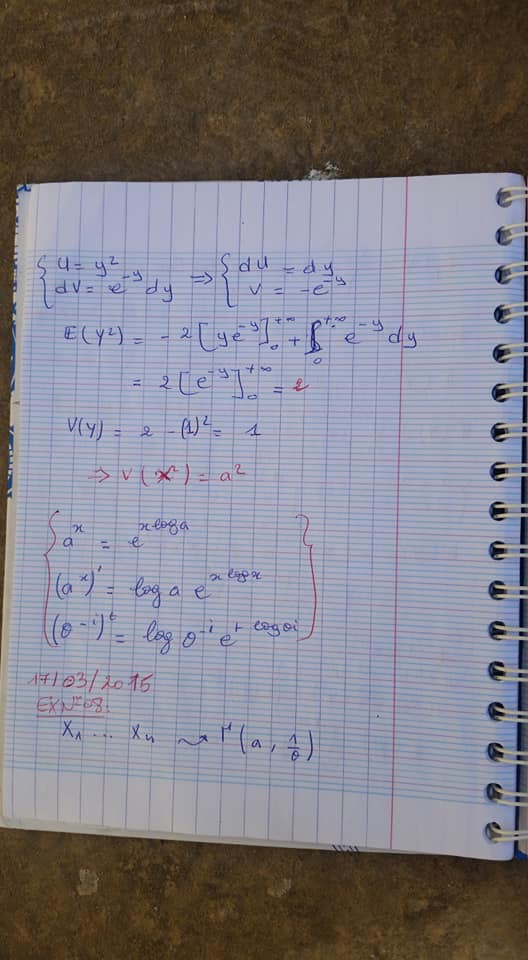 { U = y² ⇒ { dU = dy
{ dV = e^-y dy { V = -e^-y
E(Y²) = - 2 [ye^-y]₀^+∞ + ∫₀^+∞ e^-y dy
= 2 [e^-y]₀^+∞ = 2
V(Y) = 2 - (1)² = 1
⇒ V(X²) = a²
a^x = e^xloga
(a^x)' = log a e^x logx
(θ^-i)^t = log θ^-i e^t logθi
17/03/2015
EX N° 08:
X₁ ... Xn ⤳ Γ(a, 1/θ)